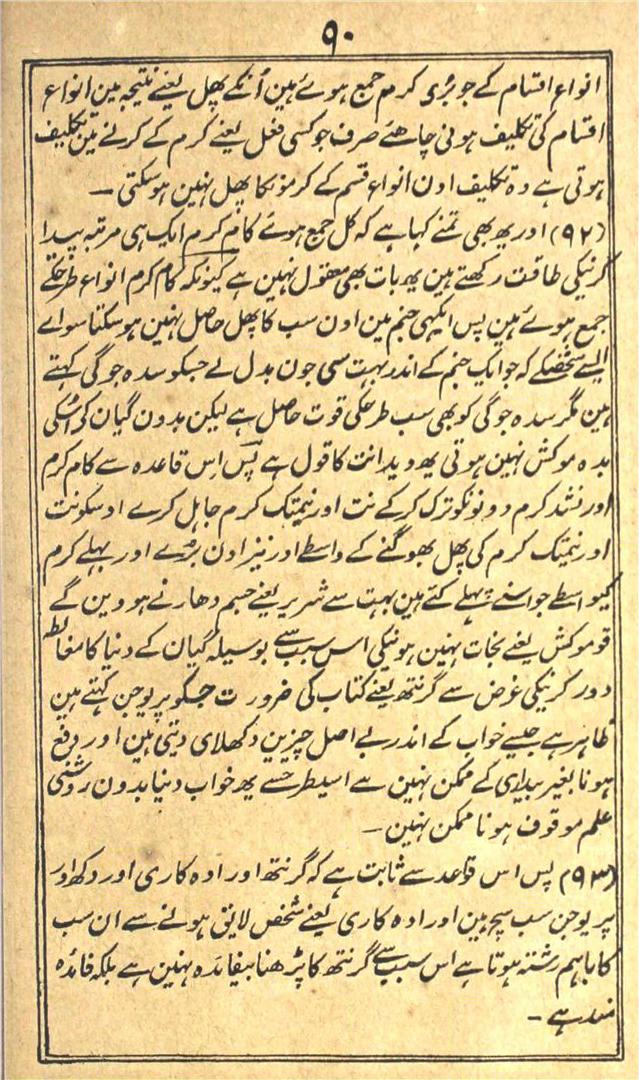 ۹۰
انواع اقسام کے جو بُری کرم جمع ہوئے ہین اُنکے پھل یعنے نتیجہ مین انواع
اقسام کی تکلیف ہونی چاھئے صرف جو کسی فعل یعنے کرم کے کرنے مین تکلیف
ہوتی ہے وہ تکلیف اون انواع قسم کے کرمونکا پھل نہین ہو سکتی ۔
(۹۲) اور یھ بھی تمنے کہا ہے کہ کل جمع ہوئے کام کرم ایک ہی مرتبہ پیدا
کرنیکی طاقت رکھتے ہین یھ بات بھی معقول نہین ہے کیونکہ کام کرم انواع طرحکے
جمع ہوئے ہین پس ایکہی جنم مین اون سب کا پھل حاصل نہین ہو سکتا سواے
ایسے شخصکے کہ جو ایک جنم کے اندر بہت سی جون بدل لے جسکو سدہ جوگی کہتے
ہین مگر سدہ جوگی کو بھی سب طرحکی قوت حاصل ہے لیکن بدون گیان کے اُسکی
بدہ موکش نہین ہوتی یھ ویدانت کا قول ہے پس اِس قاعدہ سے کام کرم
اور نشد کرم دونونکو ترک کرکے نت اور نیمتک کرم جاہل کرے اوسکو نت
اور نیمتک کرم کی پھل بھوگنے کے واسطے اور نیز اون بڑے اور پہلے کرم
کیواسطے جو اسنے پہلے کئے ہین بہت سے شریر یعنے جسم دھارنے ہووین گے
تو موکش یعنے نجات نہین ہونیکی اس سبب سے بوسیلہ گیان کے دنیا کا مغالطہ
دور کرنیکی غرض سے گرنتھ یعنے کتاب کی ضرورت جسکو پریوجن کہتے ہین
ظاہر ہے جیسے خواب کے اندر بے اصل چیزین دکھلای دیتی ہین اور رفع
ہونا بغیر بیداری کے ممکن نہین ہے اسیطرحسے یھ خواب دنیا بدون روشنی
علم موقوف ہونا ممکن نہین ۔
(۹۳) پس اس قواعد سے ثابت ہے کہ گرنتھ اور ادہ کاری اور دکھ اور
پریوجن سب سچ ہین اور ادہ کاری یعنے شخص لایق ہونے سے ان سب
کا باہم رشتہ ہوتا ہے اس سبب سے گرنتھ کا پڑھنا بیفائدہ نہین ہے بلکہ فائدہ
مند ہے ۔